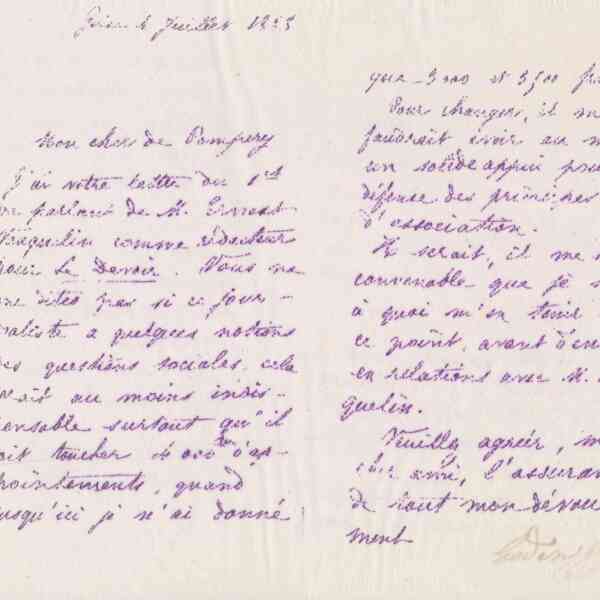 Juillet
Mon cher de Pompery
J'ai votre lettre du 1er
parlant de M. Ernest
comme rédacteur
pour Le Devoir. Vous ne
me dites pas si ce jour-
naliste a quelques notions
des questions sociales, cela
serait au moins indis-
pensable surtout qu'il
doit toucher 4000 d'ap-
pointements, quand
jusqu'ici je n'ai donné
que 3000 et 3500
Pour changer, il
faudrait avoir au
un solide appui pour
défense des principes
d'association.
Il serait, il me
convenable que je
à quoi m'en tenir
ce point, avant d'en
en relations avec M.
quelin.
Veuillez agréer,
cher ami, l'assuran
de tout mon dévoue
ment
Godin